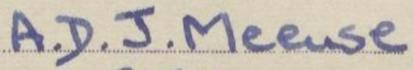 A.D.J. Meeuse